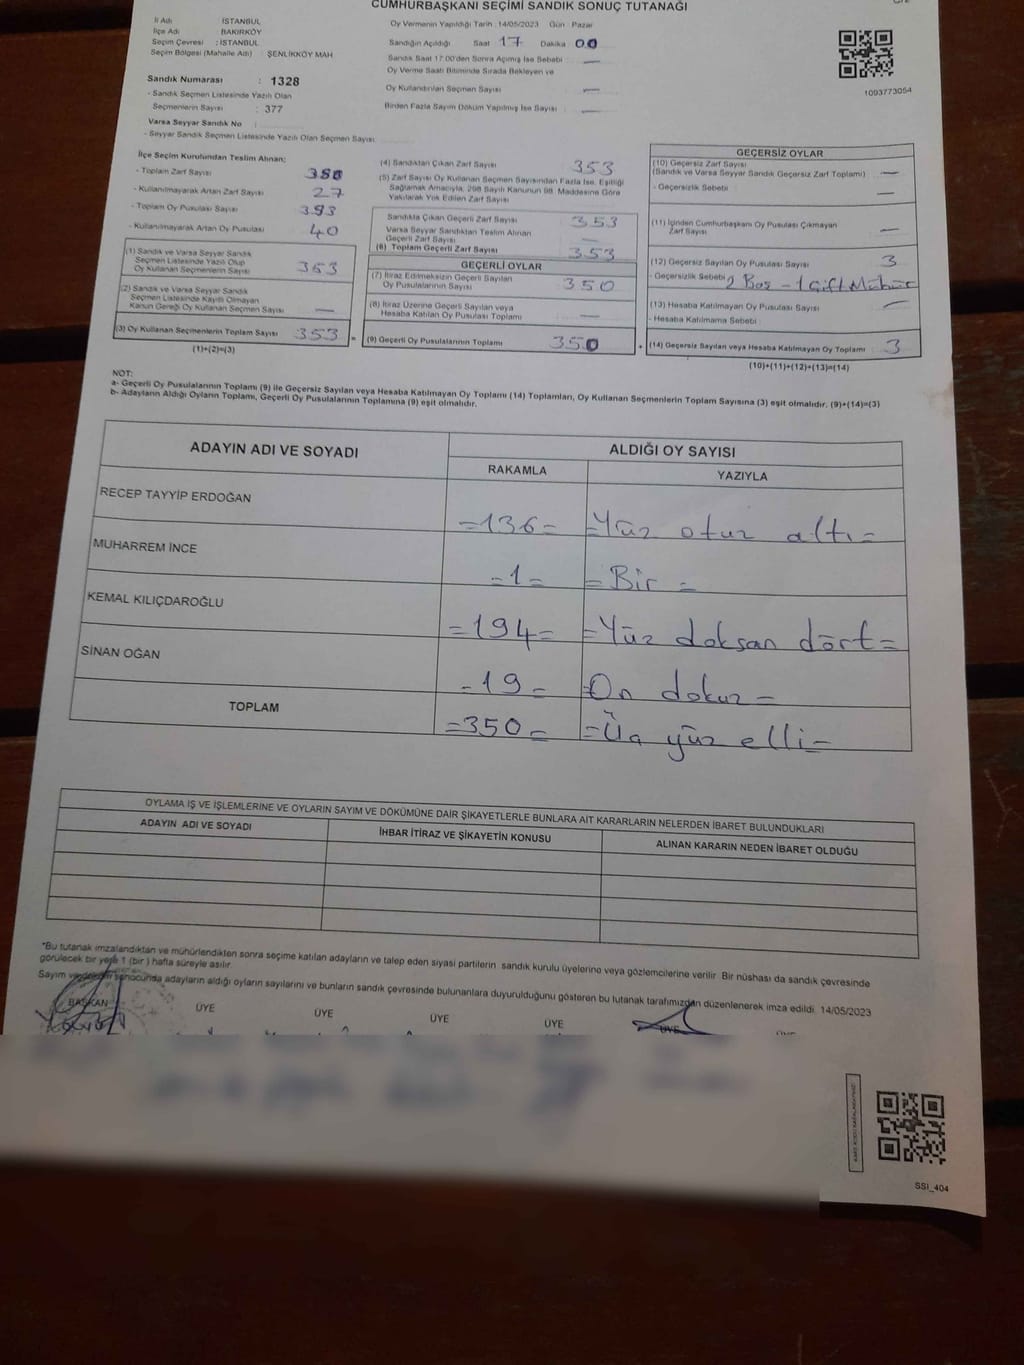 CUMHURBAŞKANI SEÇİMİ SANDIK SONUÇ TUTANAĞI
İl Adı : İSTANBUL
İlçe Adı : BAKIRKÖY
Seçim Çevresi : İSTANBUL
Seçim Bölgesi (Mahalle Adı) : ŞENLİKKÖY MAH
Sandık Numarası : 1328
- Sandık Seçmen Listesinde Yazılı Olan
Seçmenlerin Sayısı : 377
Varsa Seyyar Sandık No :
- Seyyar Sandık Seçmen Listesinde Yazılı Olan Seçmen Sayısı
Oy Vermenin Yapıldığı Tarih : 14/05/2023 Gün : Pazar
Sandığın Açıldığı Saat 17 Dakika 00
Sandık Saat 17:00'den Sonra Açılmış İse Sebebi —
Oy Verme Saati Bitiminde Sırada Bekleyen ve
Oy Kullandırılan Seçmen Sayısı —
Birden Fazla Sayım Döküm Yapılmış İse Sayısı —
1093773054
İlçe Seçim Kurulundan Teslim Alınan;
- Toplam Zarf Sayısı 380
- Kullanılmayarak Artan Zarf Sayısı 27
- Toplam Oy Pusulası Sayısı 393
- Kullanılmayarak Artan Oy Pusulası 40
(1) Sandık ve Varsa Seyyar Sandık
Seçmen Listesinde Yazılı Olup
Oy Kullanan Seçmenlerin Sayısı 353
(2) Sandık ve Varsa Seyyar Sandık
Seçmen Listesinde Kayıtlı Olmayan
Kanun Gereği Oy Kullanan Seçmen Sayısı —
(3) Oy Kullanan Seçmenlerin Toplam Sayısı 353
(1)+(2)=(3)
(4) Sandıktan Çıkan Zarf Sayısı 353
(5) Zarf Sayısı Oy Kullanan Seçmen Sayısından Fazla İse, Eşitliği
Sağlamak Amacıyla, 298 Sayılı Kanunun 98. Maddesine Göre
Yakılarak Yok Edilen Zarf Sayısı
Sandıkta Çıkan Geçerli Zarf Sayısı 353
Varsa Seyyar Sandıktan Teslim Alınan
Geçerli Zarf Sayısı —
(6) Toplam Geçerli Zarf Sayısı 353
GEÇERLİ OYLAR
(7) İtiraz Edilmeksizin Geçerli Sayılan
Oy Pusulalarının Sayısı 350
(8) İtiraz Üzerine Geçerli Sayılan veya
Hesaba Katılan Oy Pusulası Toplamı —
= (9) Geçerli Oy Pusulalarının Toplamı 350
GEÇERSİZ OYLAR
(10) Geçersiz Zarf Sayısı
(Sandık ve Varsa Seyyar Sandık Geçersiz Zarf Toplamı) —
- Geçersizlik Sebebi : —
(11) İçinden Cumhurbaşkanı Oy Pusulası Çıkmayan
Zarf Sayısı —
(12) Geçersiz Sayılan Oy Pusulası Sayısı 3
- Geçersizlik Sebebi 2 Boş - 1 Çift Mühür
(13) Hesaba Katılmayan Oy Pusulası Sayısı —
- Hesaba Katılmama Sebebi :
+ (14) Geçersiz Sayılan veya Hesaba Katılmayan Oy Toplamı 3
(10)+(11)+(12)+(13)=(14)
NOT:
a- Geçerli Oy Pusulalarının Toplamı (9) ile Geçersiz Sayılan veya Hesaba Katılmayan Oy Toplamı (14) Toplamları, Oy Kullanan Seçmenlerin Toplam Sayısına (3) eşit olmalıdır. (9)+(14)=(3)
b- Adayların Aldığı Oyların Toplamı, Geçerli Oy Pusulalarının Toplamına (9) eşit olmalıdır.
ADAYIN ADI VE SOYADI ALDIĞI OY SAYISI
RAKAMLA YAZIYLA
RECEP TAYYİP ERDOĞAN =136= =Yüz otuz altı=
MUHARREM İNCE =1= =Bir=
KEMAL KILIÇDAROĞLU =194= =Yüz doksan dört=
SİNAN OĞAN =19= =On dokuz=
TOPLAM =350= =Üç yüz elli=
OYLAMA İŞ VE İŞLEMLERİNE VE OYLARIN SAYIM VE DÖKÜMÜNE DAİR ŞİKAYETLERLE BUNLARA AİT KARARLARIN NELERDEN İBARET BULUNDUKLARI
ADAYIN ADI VE SOYADI İHBAR İTİRAZ VE ŞİKAYETİN KONUSU ALINAN KARARIN NEDEN İBARET OLDUĞU
*Bu tutanak imzalandıktan ve mühürlendikten sonra seçime katılan adayların ve talep eden siyasi partilerin sandık kurulu üyelerine veya gözlemcilerine verilir. Bir nüshası da sandık çevresinde
görülecek bir yere 1 (bir) hafta süreyle asılır.
Sayım ve döküm sonucunda adayların aldığı oyların sayılarını ve bunların sandık çevresinde bulunanlara duyurulduğunu gösteren bu tutanak tarafımızdan düzenlenerek imza edildi. 14/05/2023
BAŞKAN ÜYE ÜYE ÜYE ÜYE ÜYE ÜYE
SSİ_404